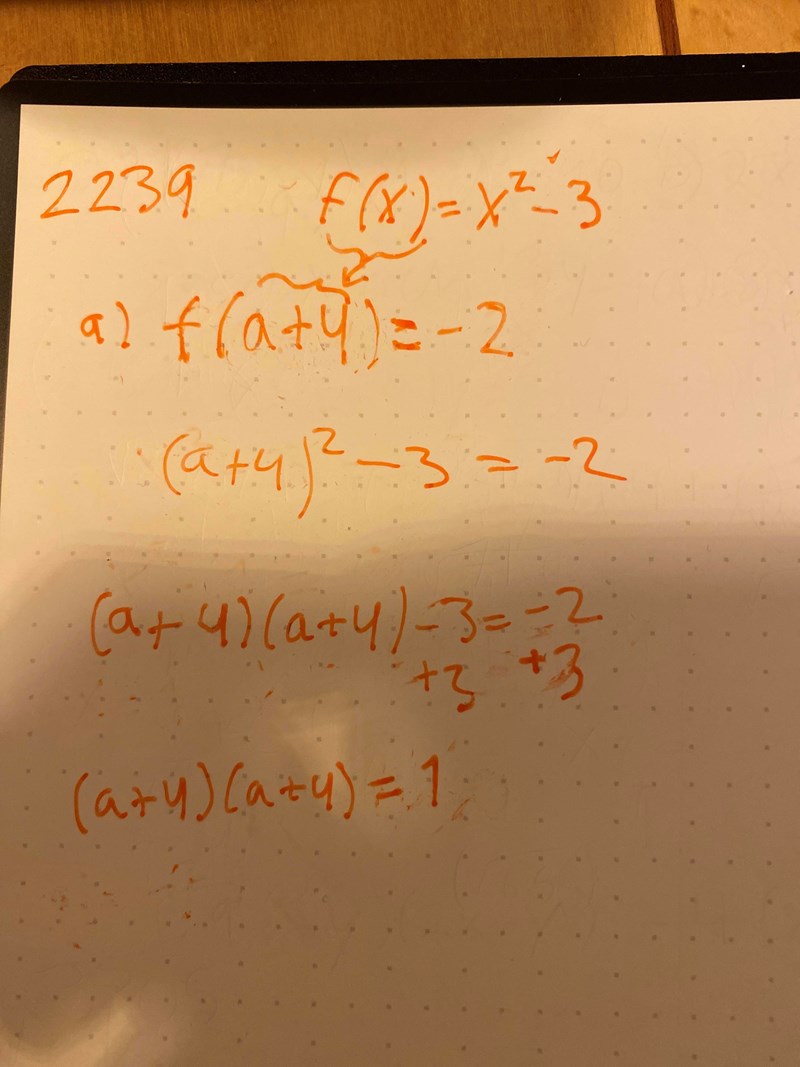 2239 f(x) = x² - 3
a) f(a+4) = -2
(a+4)² - 3 = -2
(a+4)(a+4) - 3 = -2
+3 +3
(a+4)(a+4) = 1